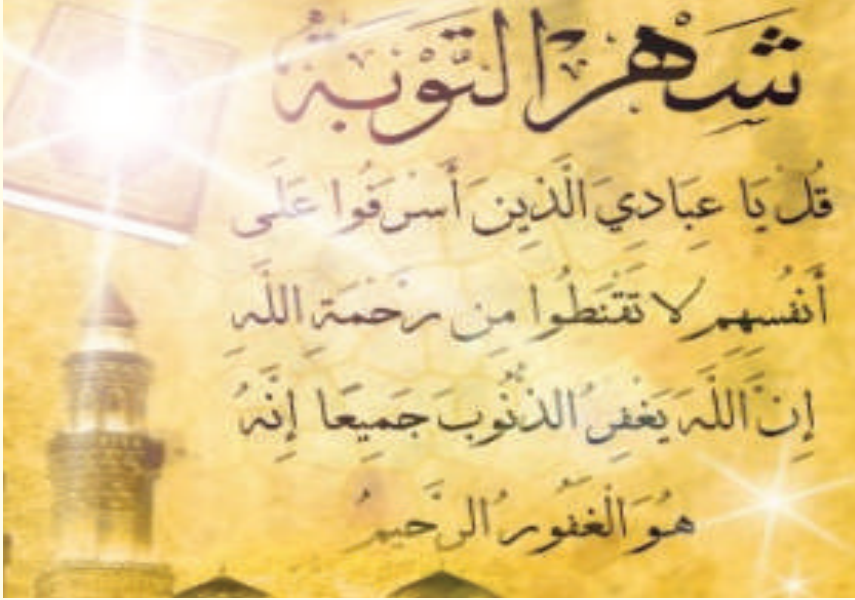 شَهْرُ التَّوْبَةِ
قُلْ يَا عِبَادِيَ الَّذِينَ أَسْرَفُوا عَلَى
أَنفُسِهِمْ لَا تَقْنَطُوا مِن رَّحْمَةِ اللَّهِ
إِنَّ اللَّهَ يَغْفِرُ الذُّنُوبَ جَمِيعًا إِنَّهُ
هُوَ الْغَفُورُ الرَّحِيمُ